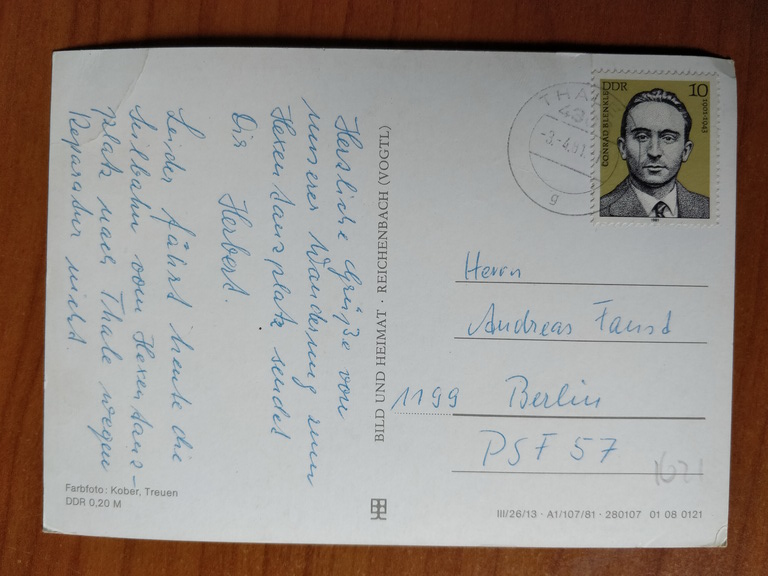 Herzliche Grüße von
unserer Wanderung zum
Hexentanzplatz sendet
Dir Herbert.
Leider fährt heute die
Seilbahn vom Hexentanz-
platz nach Thale wegen
Reparatur nicht.
Farbfoto: Kober, Treuen
DDR 0,20 M
BILD UND HEIMAT · REICHENBACH (VOGTL)
THAL
43
-3.-4.81
g
DDR 10
CONRAD BLENKLE
1901-1943
1981
Herrn
Andreas Faust
1199 Berlin
PSF 57
1621
III/26/13 · A1/107/81 · 280107 01 08 0121